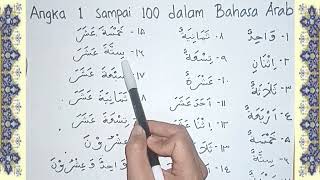 Angka 1 sampai 100 dalam Bahasa Arab
١- وَاحِدٌ
٢- اِثْنَانِ
٣- ثَلَاثَةٌ
٤- أَرْبَعَةٌ
٥- خَمْسَةٌ
٦- سِتَّةٌ
٨- ثَمَانِيَةٌ
٩- تِسْعَةٌ
١٠- عَشَرَةٌ
١١- أَحَدَ عَشَرَ
١٢- اِثْنَا عَشَرَ
١٣-
١٤-
١٥- خَمْسَةَ عَشَرَ
١٦- سِتَّةَ عَشَرَ
سَبْعَةَ عَشَرَ
عَشَرَ
تِسْعَةَ عَشَرَ
وَعِشْرُوْنَ